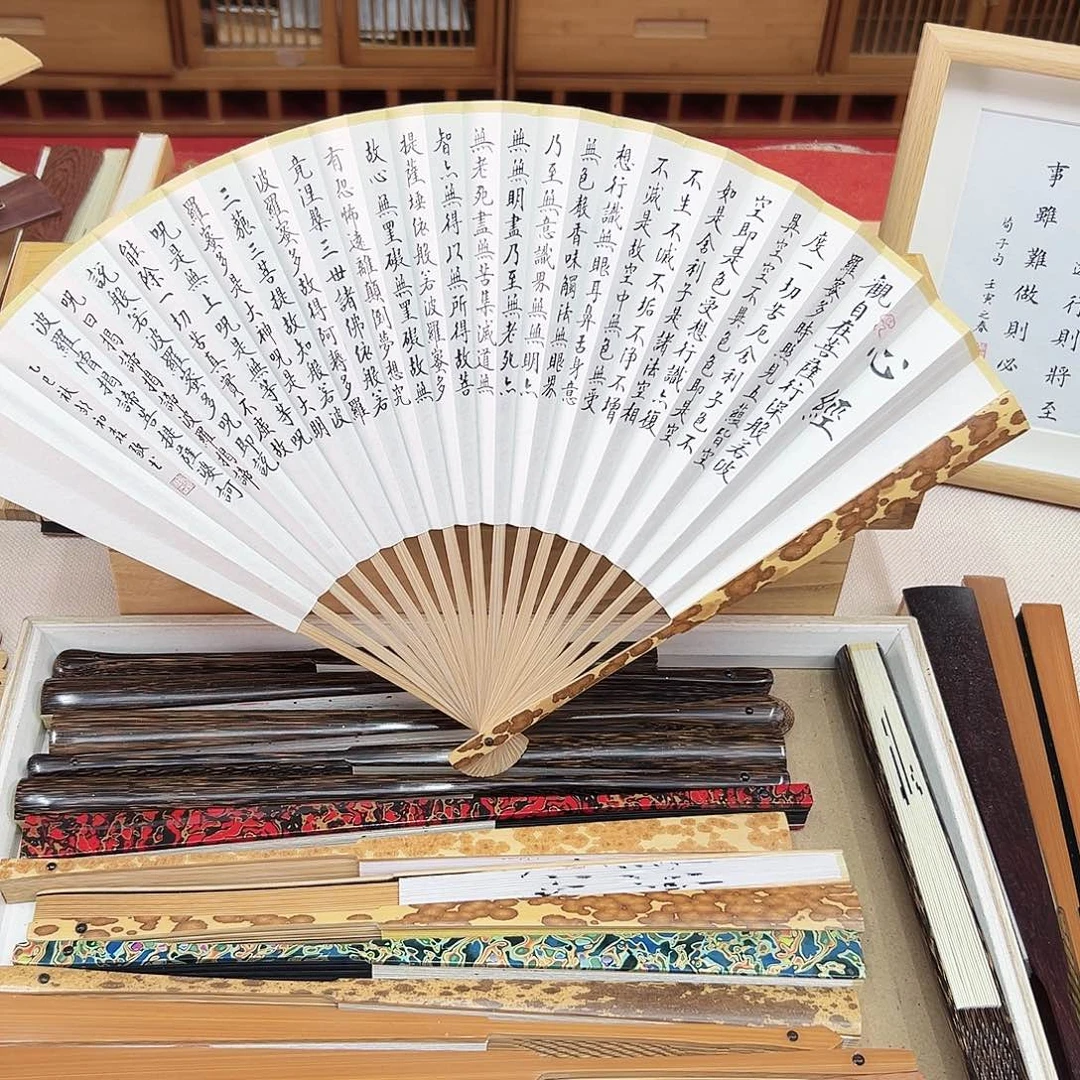 心經
觀自在菩薩行深般若波
羅蜜多時照見五蘊皆空
度一切苦厄舍利子色不
異空空不異色色即是空
空即是色受想行識亦復
如是舍利子是諸法空相
不生不滅不垢不淨不增
不減是故空中無色無受
想行識無眼耳鼻舌身意
無色聲香味觸法無眼界
乃至無意識界無無明亦
無無明盡乃至無老死亦
無老死盡無苦集滅道無
智亦無得以無所得故菩
提薩埵依般若波羅蜜多
故心無罣礙無罣礙故無
有恐怖遠離顛倒夢想究
竟涅槃三世諸佛依般若
波羅蜜多故得阿耨多羅
三藐三菩提故知般若波
羅蜜多是大神呪是大明
呪是無上呪是無等等呪
能除一切苦真實不虛故
說般若波羅蜜多呪即說
呪曰揭諦揭諦波羅揭諦
波羅僧揭諦菩提薩婆訶
乙巳秋
行則將至
事雖難做則必
荀子句 壬寅之春